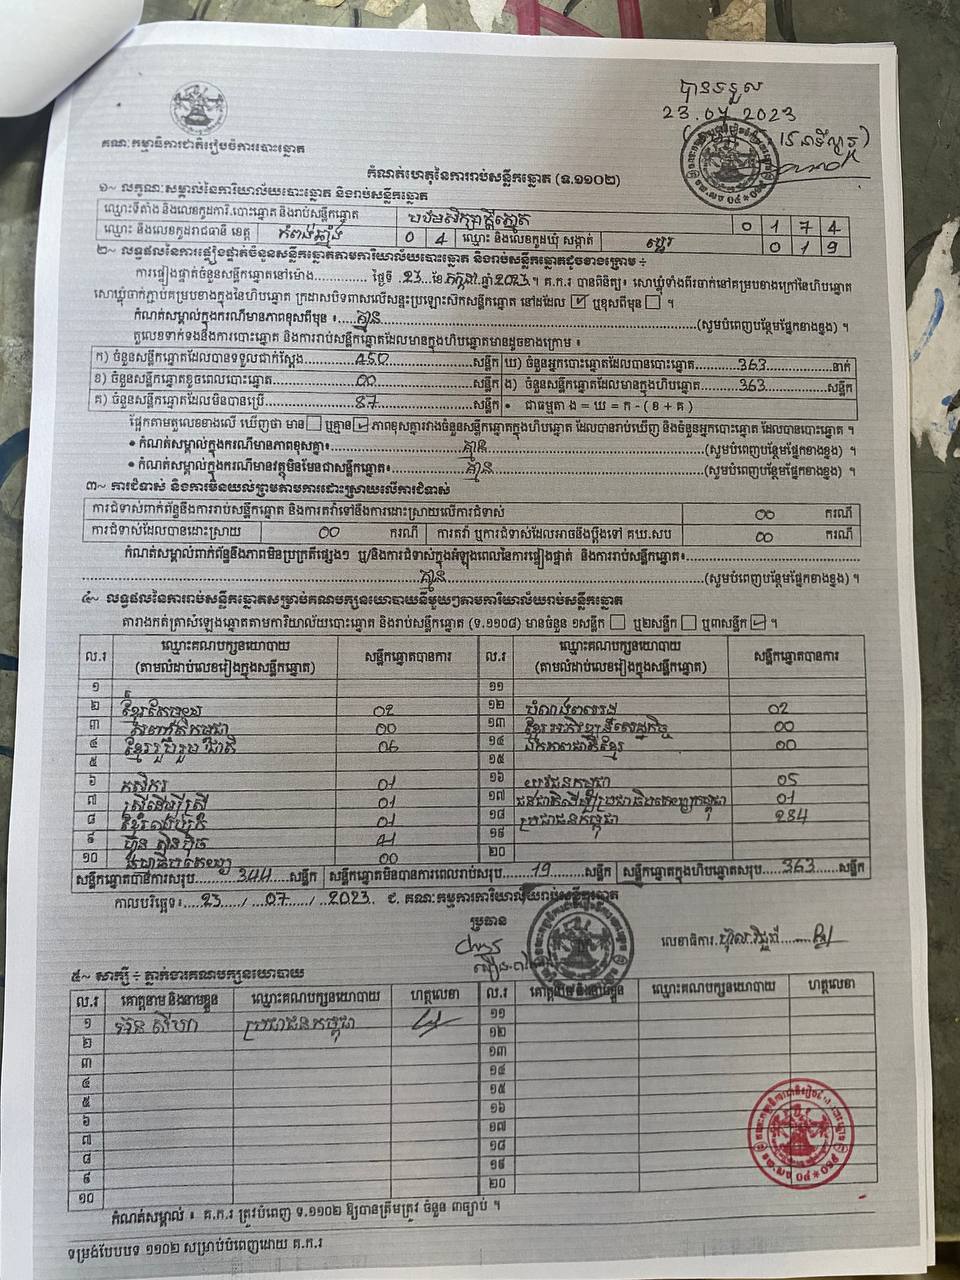 បានទទួល
23.07.2023
គណៈកម្មាធិការជាតិរៀបចំការបោះឆ្នោត
កំណត់ហេតុនៃការរាប់សន្លឹកឆ្នោត (ទ.១១០២)
១~ លក្ខណៈសម្គាល់នៃការិយាល័យបោះឆ្នោត និងរាប់សន្លឹកឆ្នោត
ឈ្មោះទីតាំង និងលេខកូដការិ.បោះឆ្នោត និងរាប់សន្លឹកឆ្នោត 0 1 7 4
ឈ្មោះ និងលេខកូដរាជធានី ខេត្ត កំពង់ឆ្នាំង 0 4 ឈ្មោះ និងលេខកូដឃុំ សង្កាត់ ស្វាយ 0 1 9
២~ លទ្ធផលនៃការផ្ទៀងផ្ទាត់ចំនួនសន្លឹកឆ្នោតតាមការិយាល័យបោះឆ្នោត និងរាប់សន្លឹកឆ្នោតដូចខាងក្រោម ÷
ការផ្ទៀងផ្ទាត់ចំនួនសន្លឹកឆ្នោតនៅម៉ោង............ ថ្ងៃទី .23..ខែ.កក្កដា.ឆ្នាំ.2023.។ គ.ក.រ បានពិនិត្យ៖ សោឃ្លុំទាំងពីរចាក់នៅគម្របខាងក្រៅនៃហិបឆ្នោត
សោឃ្លុំចាក់ភ្ជាប់គម្របខាងក្នុងនៃហិបឆ្នោត ក្រដាសបិទពាសលើសន្ទះប្រឡោះស៊ិកសន្លឹកឆ្នោត នៅដដែល ☑ ឬខុសពីមុន ☐ ។
កំណត់សម្គាល់ក្នុងករណីមានភាពខុសពីមុន ៖....គ្មាន....(សូមបំពេញបន្ថែមផ្នែកខាងខ្នង) ។
តួលេខទាក់ទងនឹងការបោះឆ្នោត និងការរាប់សន្លឹកឆ្នោតដែលមានក្នុងហិបឆ្នោតមានដូចខាងក្រោម ៖
ក) ចំនួនសន្លឹកឆ្នោតដែលបានទទួលជាក់ស្តែង........450........សន្លឹក ឃ) ចំនួនអ្នកបោះឆ្នោតដែលបានបោះឆ្នោត........363........នាក់
ខ) ចំនួនសន្លឹកឆ្នោតខូចពេលបោះឆ្នោត........00........សន្លឹក ង) ចំនួនសន្លឹកឆ្នោតដែលមានក្នុងហិបឆ្នោត........363........សន្លឹក
គ) ចំនួនសន្លឹកឆ្នោតដែលមិនបានប្រើ........87........សន្លឹក • ជាធម្មតា ង = ឃ = ក - ( ខ + គ )
ផ្អែកតាមតួលេខខាងលើ ឃើញថា មាន ☐ ឬគ្មាន ☑ ភាពខុសគ្នារវាងចំនួនសន្លឹកឆ្នោតក្នុងហិបឆ្នោត ដែលបានរាប់ឃើញ និងចំនួនអ្នកបោះឆ្នោត ដែលបានបោះឆ្នោត ។
• កំណត់សម្គាល់ក្នុងករណីមានភាពខុសគ្នា៖....គ្មាន....(សូមបំពេញបន្ថែមផ្នែកខាងខ្នង) ។
• កំណត់សម្គាល់ក្នុងករណីមានវត្ថុមិនមែនជាសន្លឹកឆ្នោត៖....គ្មាន....(សូមបំពេញបន្ថែមផ្នែកខាងខ្នង) ។
៣~ ការជំទាស់ និងការមិនយល់ព្រមតាមការដោះស្រាយលើការជំទាស់
ការជំទាស់ពាក់ព័ន្ធនឹងការរាប់សន្លឹកឆ្នោត និងការតវ៉ាទៅនឹងការដោះស្រាយលើការជំទាស់ 00 ករណី
ការជំទាស់ដែលបានដោះស្រាយ 00 ករណី ការតវ៉ា ឬការជំទាស់ដែលអាចនឹងប្តឹងទៅ គឃ.សប 00 ករណី
កំណត់សម្គាល់ពាក់ព័ន្ធនឹងភាពមិនប្រក្រតីផ្សេងៗ ឬ/និងការជំទាស់ក្នុងអំឡុងពេលនៃការផ្ទៀងផ្ទាត់ និងការរាប់សន្លឹកឆ្នោត៖
....គ្មាន....(សូមបំពេញបន្ថែមផ្នែកខាងខ្នង) ។
៤~ លទ្ធផលនៃការរាប់សន្លឹកឆ្នោតសម្រាប់គណបក្សនយោបាយនីមួយៗតាមការិយាល័យរាប់សន្លឹកឆ្នោត
តារាងកត់ត្រាសំឡេងឆ្នោតតាមការិយាល័យបោះឆ្នោត និងរាប់សន្លឹកឆ្នោត (ទ.១១០៨) មានចំនួន ១សន្លឹក ☐ ឬ២សន្លឹក ☐ ឬ៣សន្លឹក ☑ ។
ល.រ ឈ្មោះគណបក្សនយោបាយ (តាមលំដាប់លេខរៀងក្នុងសន្លឹកឆ្នោត) សន្លឹកឆ្នោតបានការ ល.រ ឈ្មោះគណបក្សនយោបាយ (តាមលំដាប់លេខរៀងក្នុងសន្លឹកឆ្នោត) សន្លឹកឆ្នោតបានការ
១ ១១
២ ខ្មែរតែមួយ 02 ១២ សំបុកឃ្មុំសង្គម 02
៣ 00 ១៣ ខ្មែរអភិវឌ្ឍន៍សេដ្ឋកិច្ច 00
៤ ខ្មែររួបរួមជាតិ 06 ១៤ ឯកភាពជាតិខ្មែរ 00
៥ ១៥
៦ កសិករ 01 ១៦ យុវជនកម្ពុជា 05
៧ ស្ត្រីដើម្បីស្ត្រី 01 ១៧ ជនជាតិដើមប្រជាធិបតេយ្យកម្ពុជា 01
៨ 01 ១៨ ប្រជាជនកម្ពុជា 284
៩ ហ៊្វុនស៊ិនប៉ិច 41 ១៩
១០ 00 ២០
សន្លឹកឆ្នោតបានការសរុប........344........សន្លឹក សន្លឹកឆ្នោតមិនបានការពេលរាប់សរុប........19........សន្លឹក សន្លឹកឆ្នោតក្នុងហិបឆ្នោតសរុប........363........សន្លឹក
កាលបរិច្ឆេទ៖ ..23.../ ...07..../ ...2023. ជ. គណៈកម្មការការិយាល័យរាប់សន្លឹកឆ្នោត
ប្រធាន
លេខាធិការ.
៥~ សាក្សី ÷ ភ្នាក់ងារគណបក្សនយោបាយ
ល.រ គោត្តនាម និងនាមខ្លួន ឈ្មោះគណបក្សនយោបាយ ហត្ថលេខា ល.រ គោត្តនាម និងនាមខ្លួន ឈ្មោះគណបក្សនយោបាយ ហត្ថលេខា
១ អ៊ន ស៊ីហា ប្រជាជនកម្ពុជា ១១
២ ១២
៣ ១៣
៤ ១៤
៥ ១៥
៦ ១៦
៧ ១៧
៨ ១៨
៩ ១៩
១០ ២០
កំណត់សម្គាល់ ៖ គ.ក.រ ត្រូវបំពេញ ទ.១១០២ ឱ្យបានត្រឹមត្រូវ ចំនួន ៣ច្បាប់ ។
ទម្រង់បែបបទ ១១០២ សម្រាប់បំពេញដោយ គ.ក.រ